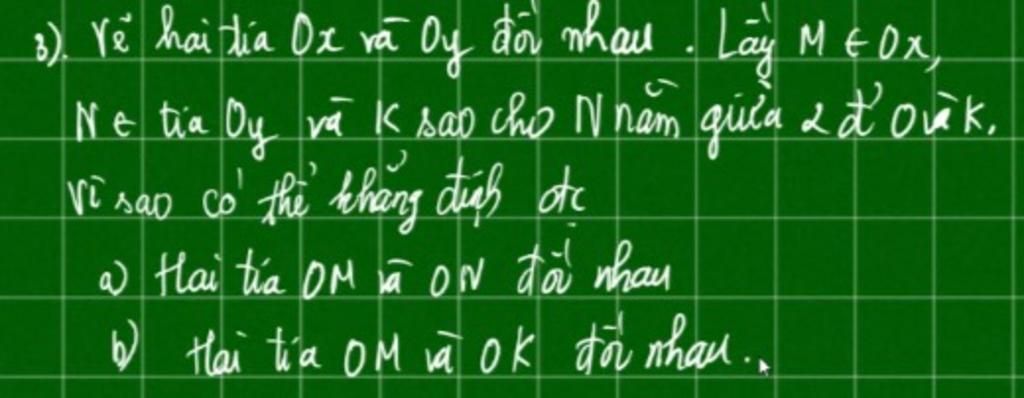 3). Vẽ hai tia Ox và Oy đối nhau. Lấy M ∈ Ox,
N ∈ tia Oy và K sao cho N nằm giữa 2 đ' O và K.
Vì sao có thể khẳng định đc
a) Hai tia OM và ON đối nhau
b) Hai tia OM và OK đối nhau.